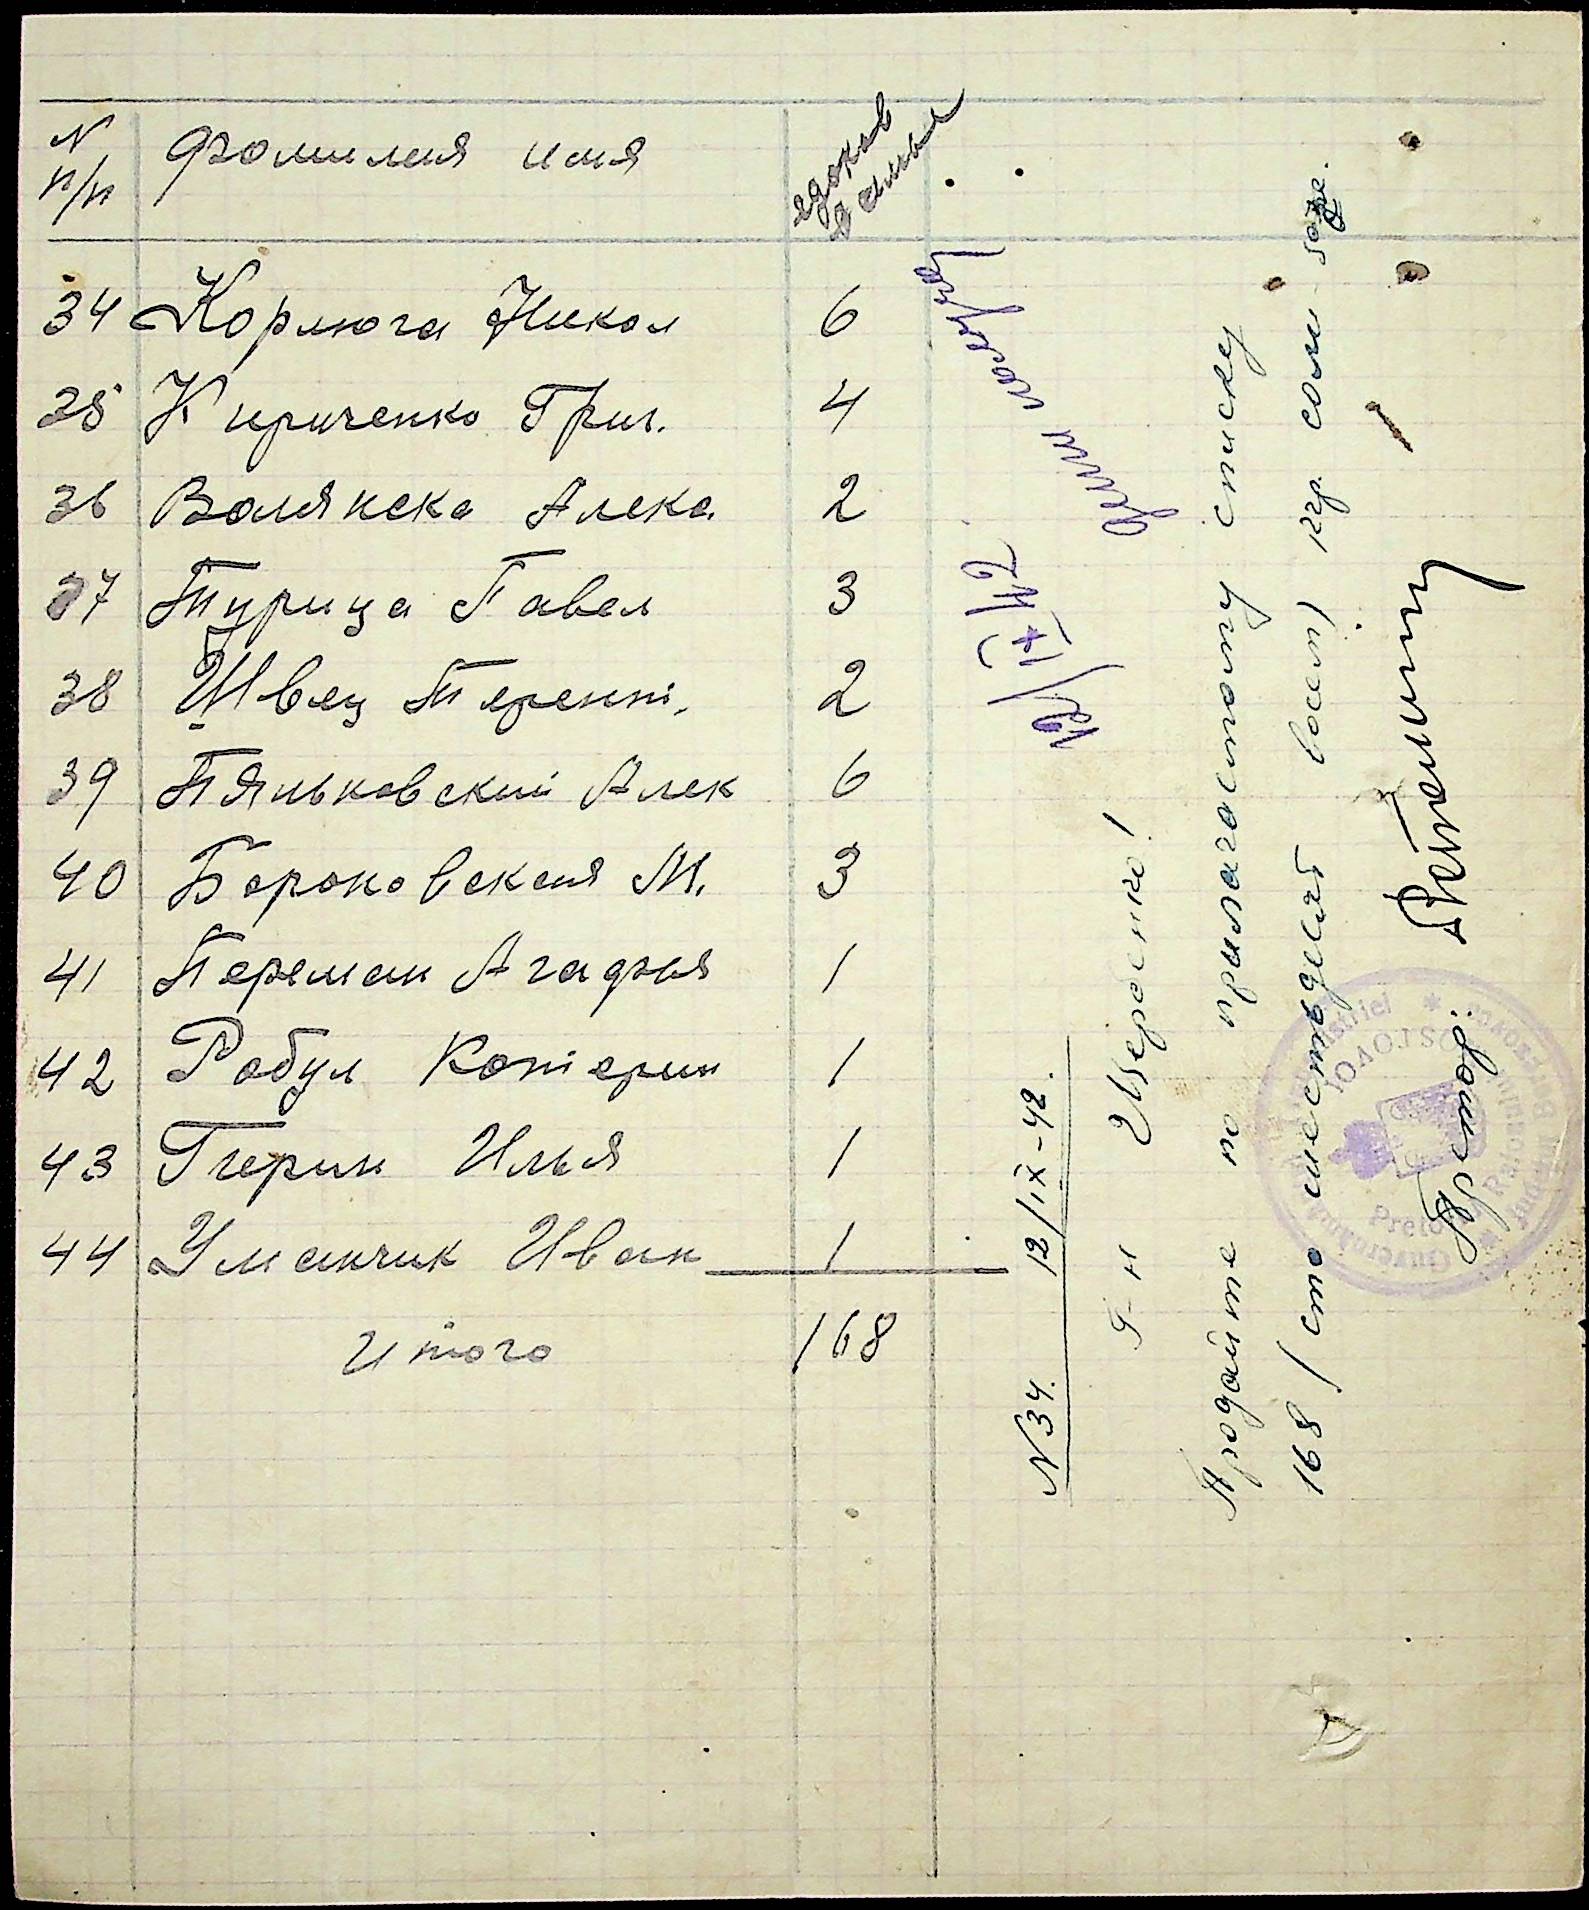 N п/п Фамилия имя едоков в семье
34 Кормюга Никол 6
35 Кириченко Григ. 4
36 Волянска Алекс. 2
37 Турица Павел 3
38 Швец Терент. 2
39 Паньковский Алек 6
40 Бороновская М. 3
41 Переман Агафья 1
42 Робул Котерин 1
43 Герин Илья 1
44 Уманчик Иван 1
Итого 168
12/IX 42
N 34. 12/IX-42.
Г-н
Продайте по прилагаемому списку
168 / сто шестьдесят восем) кгр. соли
Претор: